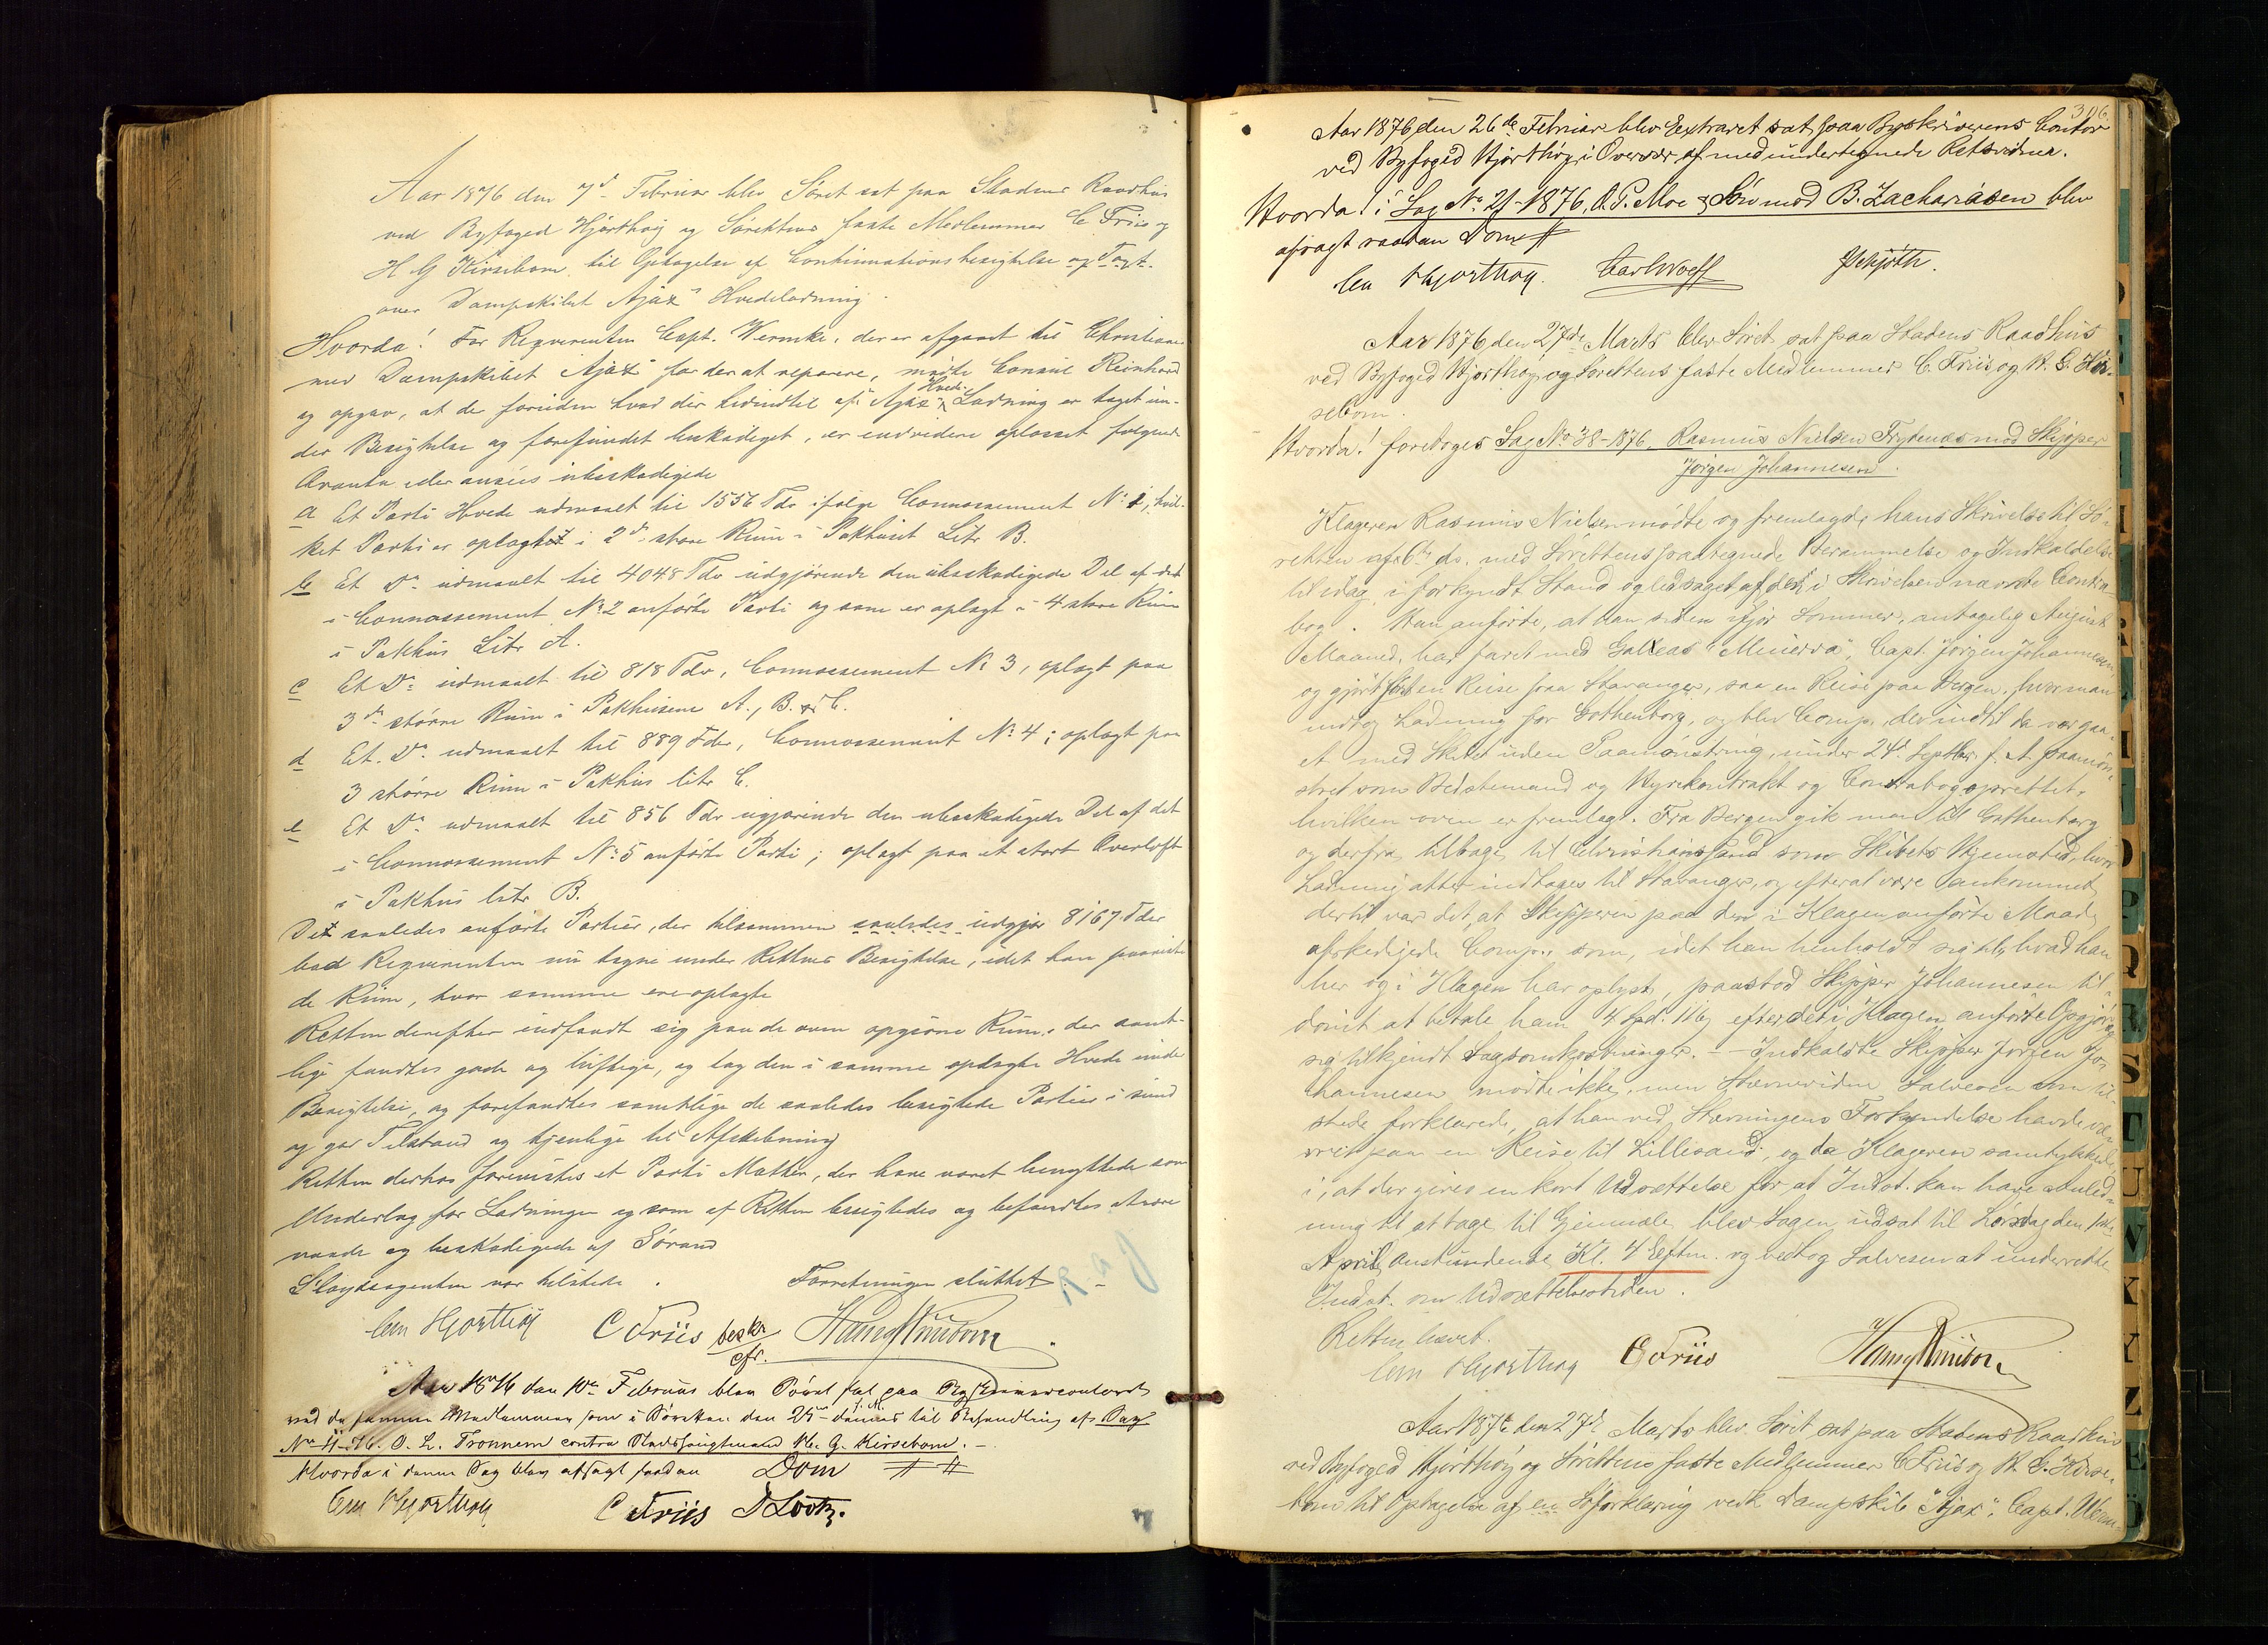 Aar 1876 den 7de Februar blev Söret sat paa Stadens Raadhus
ved Byfoged Hjörthöy og Sörettens faste Medlemmer C Friis og
H G Kirsebom til Optagelse af Continuationsbesigtelse og Taxt.
over Dampskibet "Ajax" Hvedeladning.
Hvorda! For Reqvirenten Capt. Wermke, der er afgaaet til Christiania
med Dampskibet "Ajax" for der at reparere, mödte Consul Reinhard
og opgav, at der foruden hvad der hidindtil af "Ajax" Hvede Ladning er taget un-
der Besigtelse og forefundet beskadiget, er endvidere oplosset følgende
Qvanta der ansees ubeskadigede
a Et Parti Hvede udmaalt til 1556 Tdr ifølge Connossement No 1, hvil-
ket Parti er oplagt i 2de store Rum i Pakhuset Litr B.
b Et Do udmaalt til 4048 Tdr udgjörende den ubeskadigede Del af det
i Connossement No 2 anførte Parti og som er oplagt i 4 store Rum
i Pakhus Litr A.
c Et Do udmaalt til 818 Tdr, Connossement No 3, oplagt paa
3de större Rum i Pakhusene A., B. & C.
d Et. Do udmaalt til 889 Tdr, Connossement No 4; oplagt paa
3 större Rum i Pakhus litr C.
e Et Do udmaalt til 856 Tdr ugjörende den ubeskadigede Del af det
i Connossement No 5 anførte Parti; oplagt paa et stort Overloft
i Pakhus litr B.
De saaledes anførte Partier, der tilsammen saaledes udgjør 8167 Tdr
bad Reqvirenten nu tagne under Rettens Besigtelse, idet han paaviste
de Rum, hvor samme ere oplagte
Retten derefter indfandt sig paa de oven opgivne Rum, der samt-
lige fandtes gode og luftige, og tog den i samme oplagte Hvede under
Besigtelse, og forefandtes samtlige de saaledes besigtede Partier i sund
og god Tilstand og tjenlige til Afskibning
Retten derhos forevistes et Parti Matter, der have været benyttede som
Underlag for Ladningen og som af Retten besigtedes og befandtes at være
vaade og beskadigede af Søvand
Lloydsagenten var tilstede. Forretningen sluttet. -
Chr Hjorthöy C Friis beskr Hans G Kirsebom
efr.
Aar 1876 den 10de Februar blev Søret sat paa Byskrivercontoret
med de samme Medlemmer som i Søretten den 25de dennes f. M. til Behandling af Sag
No 4-76. O. L. Tronnem contra Stadshauptmand H. G. Kirsebom. -
Hvorda i denne Sag blev afsagt saadan Dom #
Chr Hjorthöy C Friis D Lootz.
306.
Aar 1876 den 26de Februar blev Extraret sat paa Byskriverens Contor
ved Byfoged Hjorthöy i Overvær af medundertegnede Retsvidner.
Hvorda! i Sag No 21-1876, A. P. Moe & Sön mod B. Zachariasen blev
afsagt saadan Dom #
Chr Hjorthöy. Carl Wolff P Schjöth.
Aar 1876 den 27de Marts blev Söret sat paa Stadens Raadhus
ved Byfoged Hjorthöy og Sörettens faste Medlemmer C. Friis og H. G. Kir-
sebom.
Hvorda! foretoges Sag No 38-1876, Rasmus Nielsen Frydenæs mod Skipper
Jørgen Johannesen.
Klageren Rasmus Nielsen mödte og fremlagde hans Skrivelse til Sö-
retten af 6te ds. med Sörettens paategnede Berammelse og Indkaldelse
til idag i forkyndt Stand og ledsaget af den i Skrivelsen nævnte Contra-
bog. Han anførte, at han siden ifjor Sommer, antagelig August
Maaned, har faret med Galeas "Minerva", Capt. Jørgen Johannesen,
og gjort først en Reise paa Stavanger, saa en Reise paa Bergen, hvor man
indtog Ladning for Gothenborg, og blev Comp., der indtil da var gaa-
et med Skibet uden Paamønstring, under 24de Septbr. f. A. paamøn-
stret som Bedstemand og Hyrekontrakt og Contrabog oprettet,
hvilken oven er fremlagt. Fra Bergen gik man til Gothenborg
og derfra tilbage til Christianssand som Skibets Hjemsted, hvor
Ladning atter indtages til Stavanger, og efter at være ankommet
dertil var det, at Skipperen paa den i Klagen anførte Maade
afskedigede Comp., som, idet han henholdt sig til, hvad han
her og i Klagen har oplyst, paastod Skipper Johannesen til-
dömt at betale ham 4 Spd. 116 ß efter det i Klagen anførte Opgjör og
sig tilkjendt Sagsomkostninger. - Indkaldte Skipper Jørgen Jo-
hannesen mödte ikke, men Stævnevidne Salvesen som til-
stede forklarede, at han ved Stævningens Forkyndelse havde væ-
ret paa en Reise til Lillesand, og da Klageren samtykkede
i, at der gives en kort Udsættelse for at Indst. kan have Anled-
ning til at tage til Gjenmæle, blev Sagen udsat til Lørsdag den 1ste
April anstundende Kl. 4 Efterm. og vedtog Salvesen at underrette
Indst. om Udsættelsestiden.
Retten hævet.
Chr Hjorthöy C Friis Hans G Kirsebom
Aar 1876 den 27de Marts blev Söret sat paa Stadens Raadhus
ved Byfoged Hjörthöy og Sörettens faste Medlemmer C Friis og H. G. Kirse-
bom til Optagelse af en Söforklaring vedk. Dampskib "Ajax", Capt. Werm-